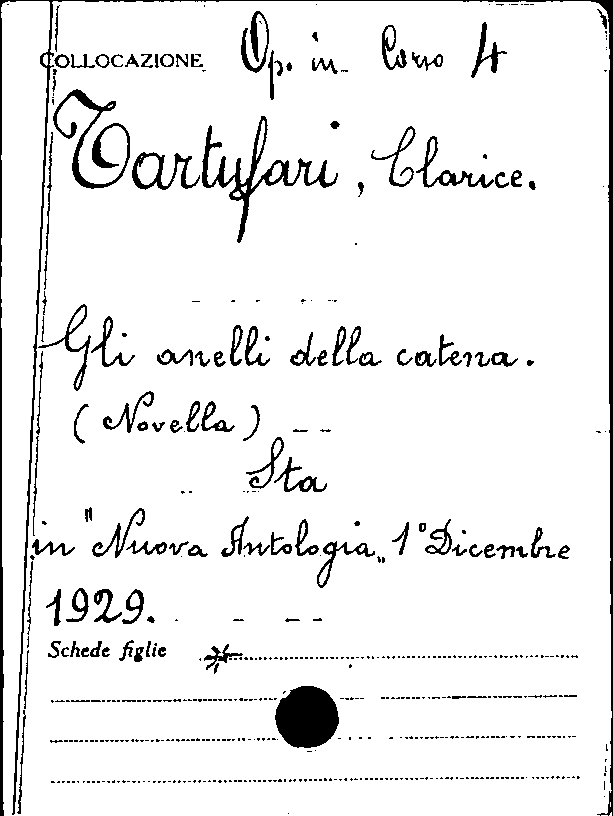 COLLOCAZIONE Op. in Corso 4
Tartufari, Clarice.
Gli anelli della catena.
(Novella)
Sta
in "Nuova Antologia„ 1° Dicembre
1929.
Schede figlie